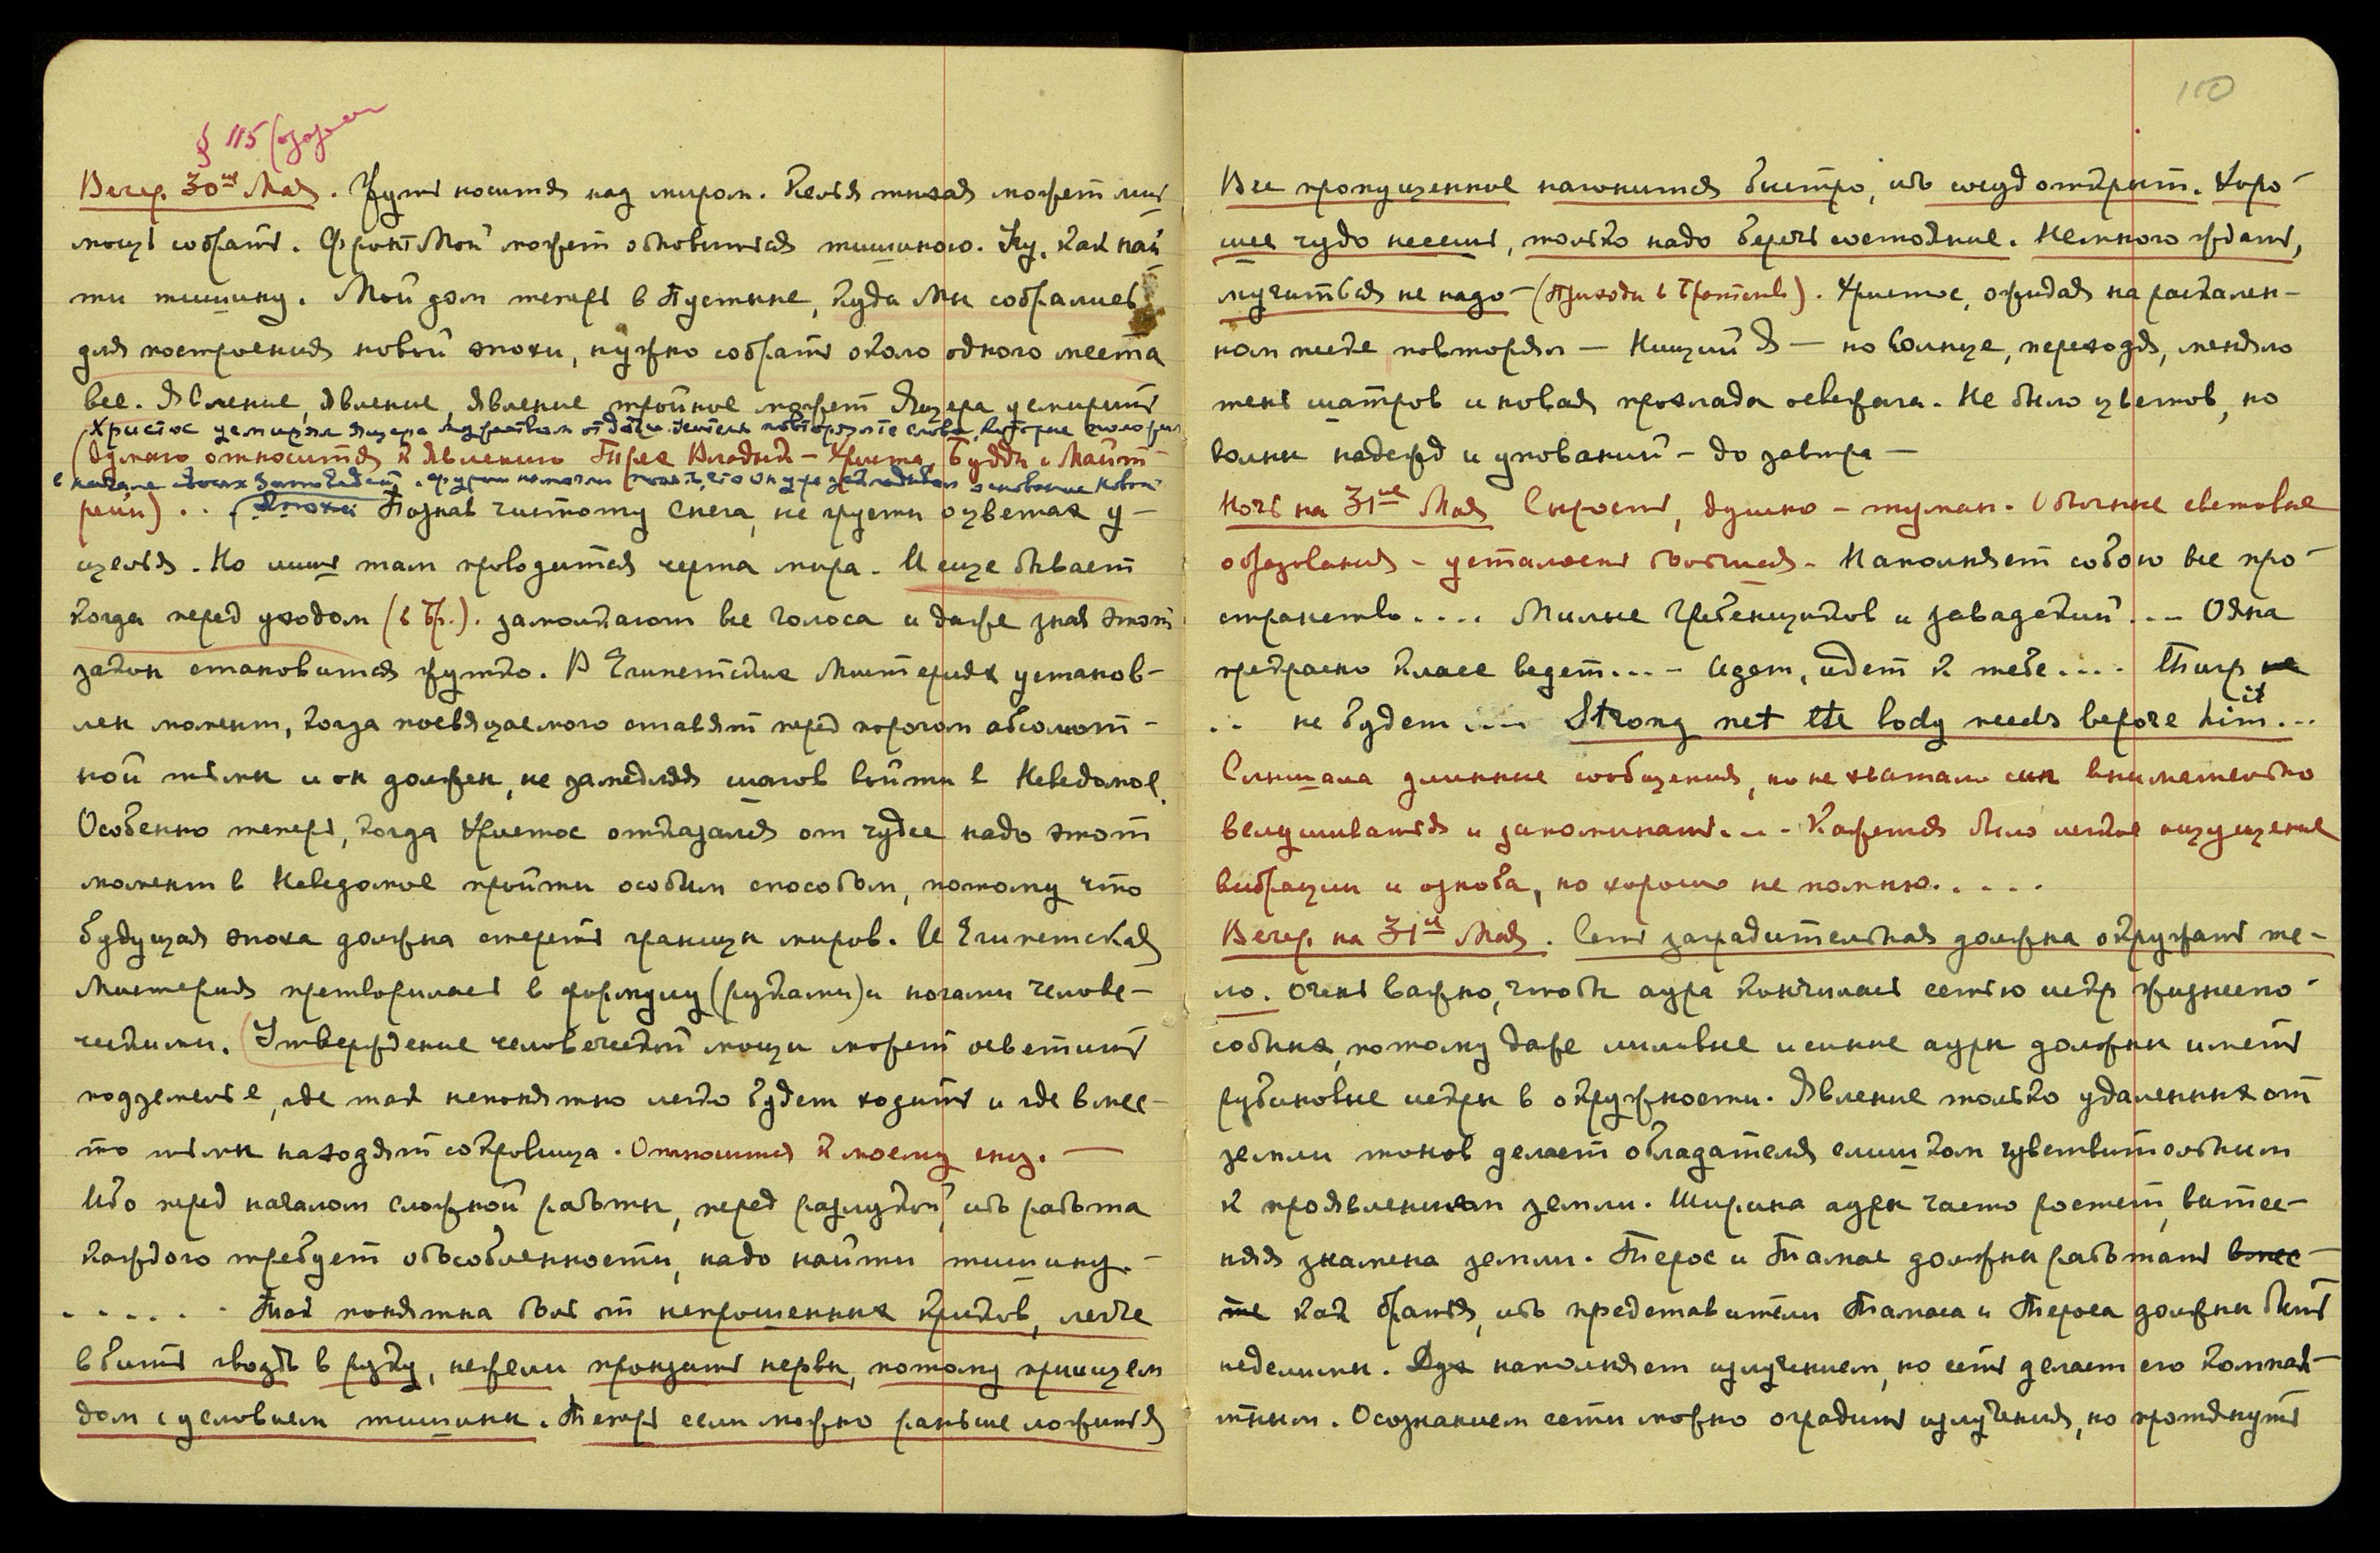 110
§ 115
Вечер 30го Мая. Жуть носится над миром. Келья тихая может лишь
мощь собрать. Фронт Мой может обновиться тишиною. Ну, как най
ти тишину. Мой дом теперь в Пустыне, куда Мы собрались
для построения новой эпохи, нужно собрать около одного места
все. Явление, явление, явление тройное может Ящера усмирить
Христос усмирял ящера повторяйте слова, которые положил
(Думаю относится к явлению Трех Владык – Христа, Будды и Майт-
в начале своих Заповедей. основание новой
рейи) . . Эпохи Познав чистоту снега, не грусти о цветах у-
щелья. Но лишь там проводится черта мира. И еще бывает
когда перед уходом (в Бр.). замолкают все голоса и даже зная этот
закон становится жутко. В Египетских Мистериях установ-
лен момент, когда посвящаемого ставят перед порогом абсолют-
ной тьмы и он должен, не замедляя шагов войти в Неведомое.
Особенно теперь, когда Христос отказался от чудес надо этот
момент в Неведомое пройти особым способом, потому что
будущая эпоха должна стереть границы миров. И Египетская
Мистерия претворилась в формулу (руками) и ногами челове-
ческими. (Утверждение человеческой мощи может осветить
подземелье, где так непонятно легко будет ходить и где вмес-
то тьмы находят сокровища. Относится к моему сну. —
Ибо перед началом сложной работы, перед разлукой, ибо работа
каждого требует обособленности, надо найти тишину. –
. . . . . . Так понятна боль от непрошенных криков, легче
вбить гвоздь в руку, нежели пронзить нервы, потому приищем
дом с условием тишины. Теперь если можно раньше ложиться
Все пропущенное нагонится быстро, ибо сосуд открыт. Хоро-
шее чудо несешь, только надо беречь состояние. Немного ждать,
мучиться не надо – (Прихода в Братство). Христос, ожидая на раскален-
ном песке повторял — Нищий Я — но Солнце, переходя, меняло
тень шатров и новая прохлада освежала. Не было цветов, но
волны надежд и упований – до завтра —
Ночь на 31ое Мая Сырость, душно – туман. Обычные световые
образования – усталость большая. Наполняет собою все про-
странство . . . . Милые Гребенщиков и Завадский . . . Одна
прекрасно класс ведет . . . – Идет, идет к тебе . . . .
. . не будет . . . . Strong net the body needs before him it . . .
Слышала длинные сообщения, но не хватало сил внимательно
вслушиваться и запоминать . . . – Кажется было легкое ощущение
вибрации и озноба, но хорошо не помню . . . . .
Вечер на 31ое Мая. Сеть заградительная должна окружать те-
ло. Очень важно, чтобы аура кончилась сетью искр жизнеспо-
собных, потому даже лиловые и синие ауры должны иметь
рубиновые искры в окружности. Явление только удаленных от
земли тонов делает обладателя слишком чувствительным
к проявлениям земли. Ширина ауры часто растет, вытес-
няя знамена земли. Терос и Тамас должны работать вмес-
те как братья, ибо представители Тамаса и Тероса должны быть
неделимы. Дух наполняет излучением, но сеть делает его компак-
тным. Осознанием сети можно оградить излучения, но протянуть